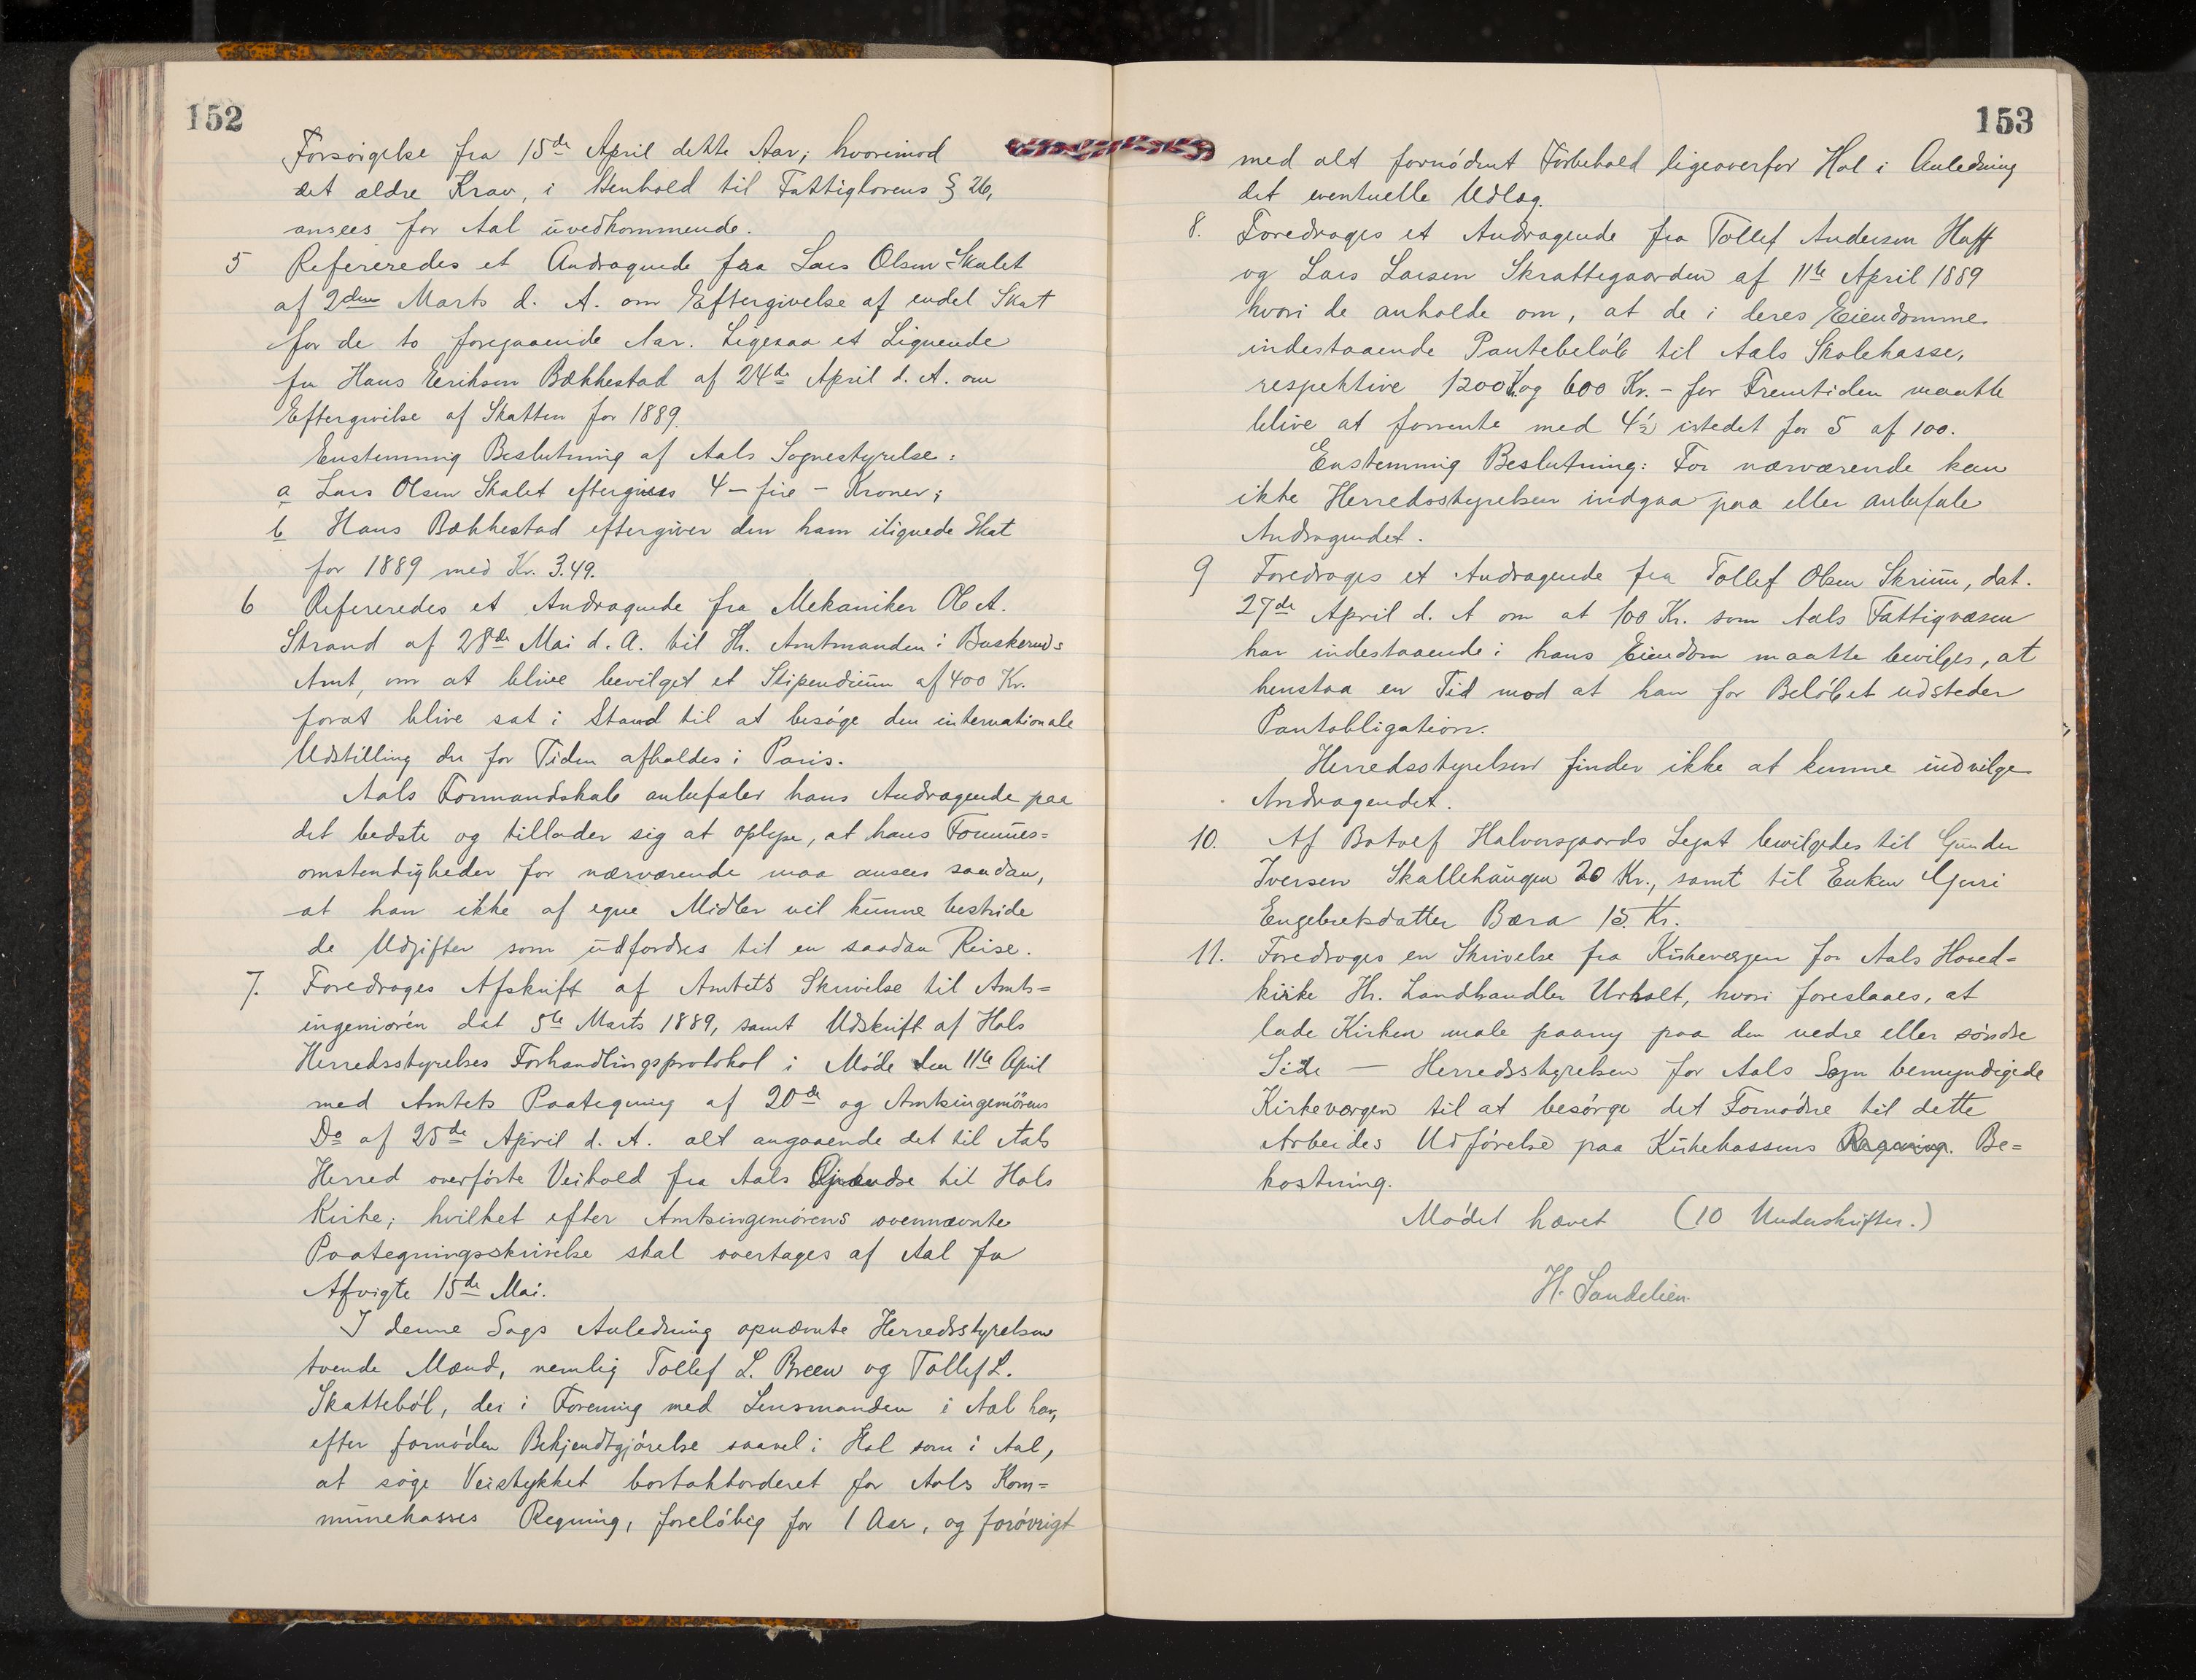 152
Forsørgelse fra 15de April dette Aar; hvorimod
det ældre Krav, i Henhold til Fattiglovens § 26,
ansees for Aal uvedkommende.
5 Refereredes et Andragende fra Lars Olsen Skalet
af 2den Marts d. A. om Eftergivelse af endel Skat
for de to foregaaende Aar. Ligesaa et Lignende
fra Hans Eriksen Bækkestad af 24de April d. A. om
Eftergivelse af Skatten for 1889.
Enstemmig Beslutning af Aals Sognestyrelse:
a Lars Olsen Skalet eftergives 4 – fire – Kroner;
b Hans Bækkestad eftergiver den ham ilignede Skat
for 1889 med Kr. 3.49.
6 Refereredes et Andragende fra Mekaniker Ole A.
Strand af 28de Mai d. A. til Hr. Amtmanden i Buskeruds
Amt, om at blive bevilget et Stipendium af 400 Kr.
forat blive sat i Stand til at besøge den internationale
Udstilling der for Tiden afholdes i Paris.
Aals Formandskab anbefaler hans Andragende paa
det bedste og tillader sig at oplyse, at hans Formues=
omstendigheder for nærværende maa ansees saadan,
at han ikke af egne Midler vil kunne bestride
de Udgifter som udfordres til en saadan Reise.
7. Foredroges Afskrift af Amtets Skrivelse til Amts=
ingeniøren dat 5te Marts 1889, samt Udskrift af Hols
Herredsstyrelses Forhandlingsprotokol i Møde den 11te April
med Amtets Paategning af 20de og Amtsingeniørens
Do af 25de April d. A. alt angaaende det til Aals
Herred overførte Veihold fra Aals Grændse til Hols
Kirke; hvilket efter Amtsingeniørens ovennævnte
Paategningsskrivelse skal overtages af Aal fra
Afvigte 15de Mai.
I denne Sags Anledning opnævnte Herredsstyrelsen
tvende Mænd, nemlig Tollef L. Breen og Tollef L.
Skattebøl, der i Forening med Lensmanden i Aal har,
efter fornøden Bekjendtgjørelse saavel i Hol som i Aal,
at søge Veistykket bortakkorderet for Aals Kom=
munekasses Regning, foreløbig for 1 Aar, og forøvrigt
153
med alt fornødent Forbehold ligeoverfor Hol i Anledning
det eventuelle Udlæg.
8. Foredroges et Andragende fra Tollef Andersen Hoff
og Lars Larsen Skrattegaarden af 11te April 1889
hvori de anholde om, at de i deres Eiendomme
indestaaende Pantebeløb til Aals Skolekasse,
respektive 1200 Kr. og 600 Kr. – for Fremtiden maatte
blive at forrente med 4½ istedet for 5 af 100.
Enstemmig Beslutning: For nærværende kan
ikke Herredsstyrelsen indgaa paa eller anbefale
Andragendet.
9 Foredroges et Andragende fra Tollef Olsen Skrium, dat.
27de April d. A om at 100 Kr. som Aals Fattigvæsen
har indestaaende i hans Eiendom maatte bevilges, at
henstaa en Tid mod at han for Beløbet udsteder
Pantobligation.
Herredsstyrelsen finder ikke at kunne indvilge
Andragendet.
10. Af Botolf Halvorsgaards Legat bevilgedes til Gunder
Iversen Skallehaugen 20 Kr., samt til Enken Guri
Engebretsdatter Bæra 15. Kr.
11. Foredroges en Skrivelse fra Kirkeværgen for Aals Hoved=
kirke Hr. Landhandler Urholt, hvori foreslaaes, at
lade Kirken male paany paa den nedre eller søndre
Side — Herredsstyrelsen for Aals Sogn bemyndigede
Kirkeværgen til at besørge det Fornødne til dette
Arbeides Udførelse paa Kirkekassens Regning. Be=
kostning.
Mødet hævet (10 Underskrifter.)
H. Sandelien.